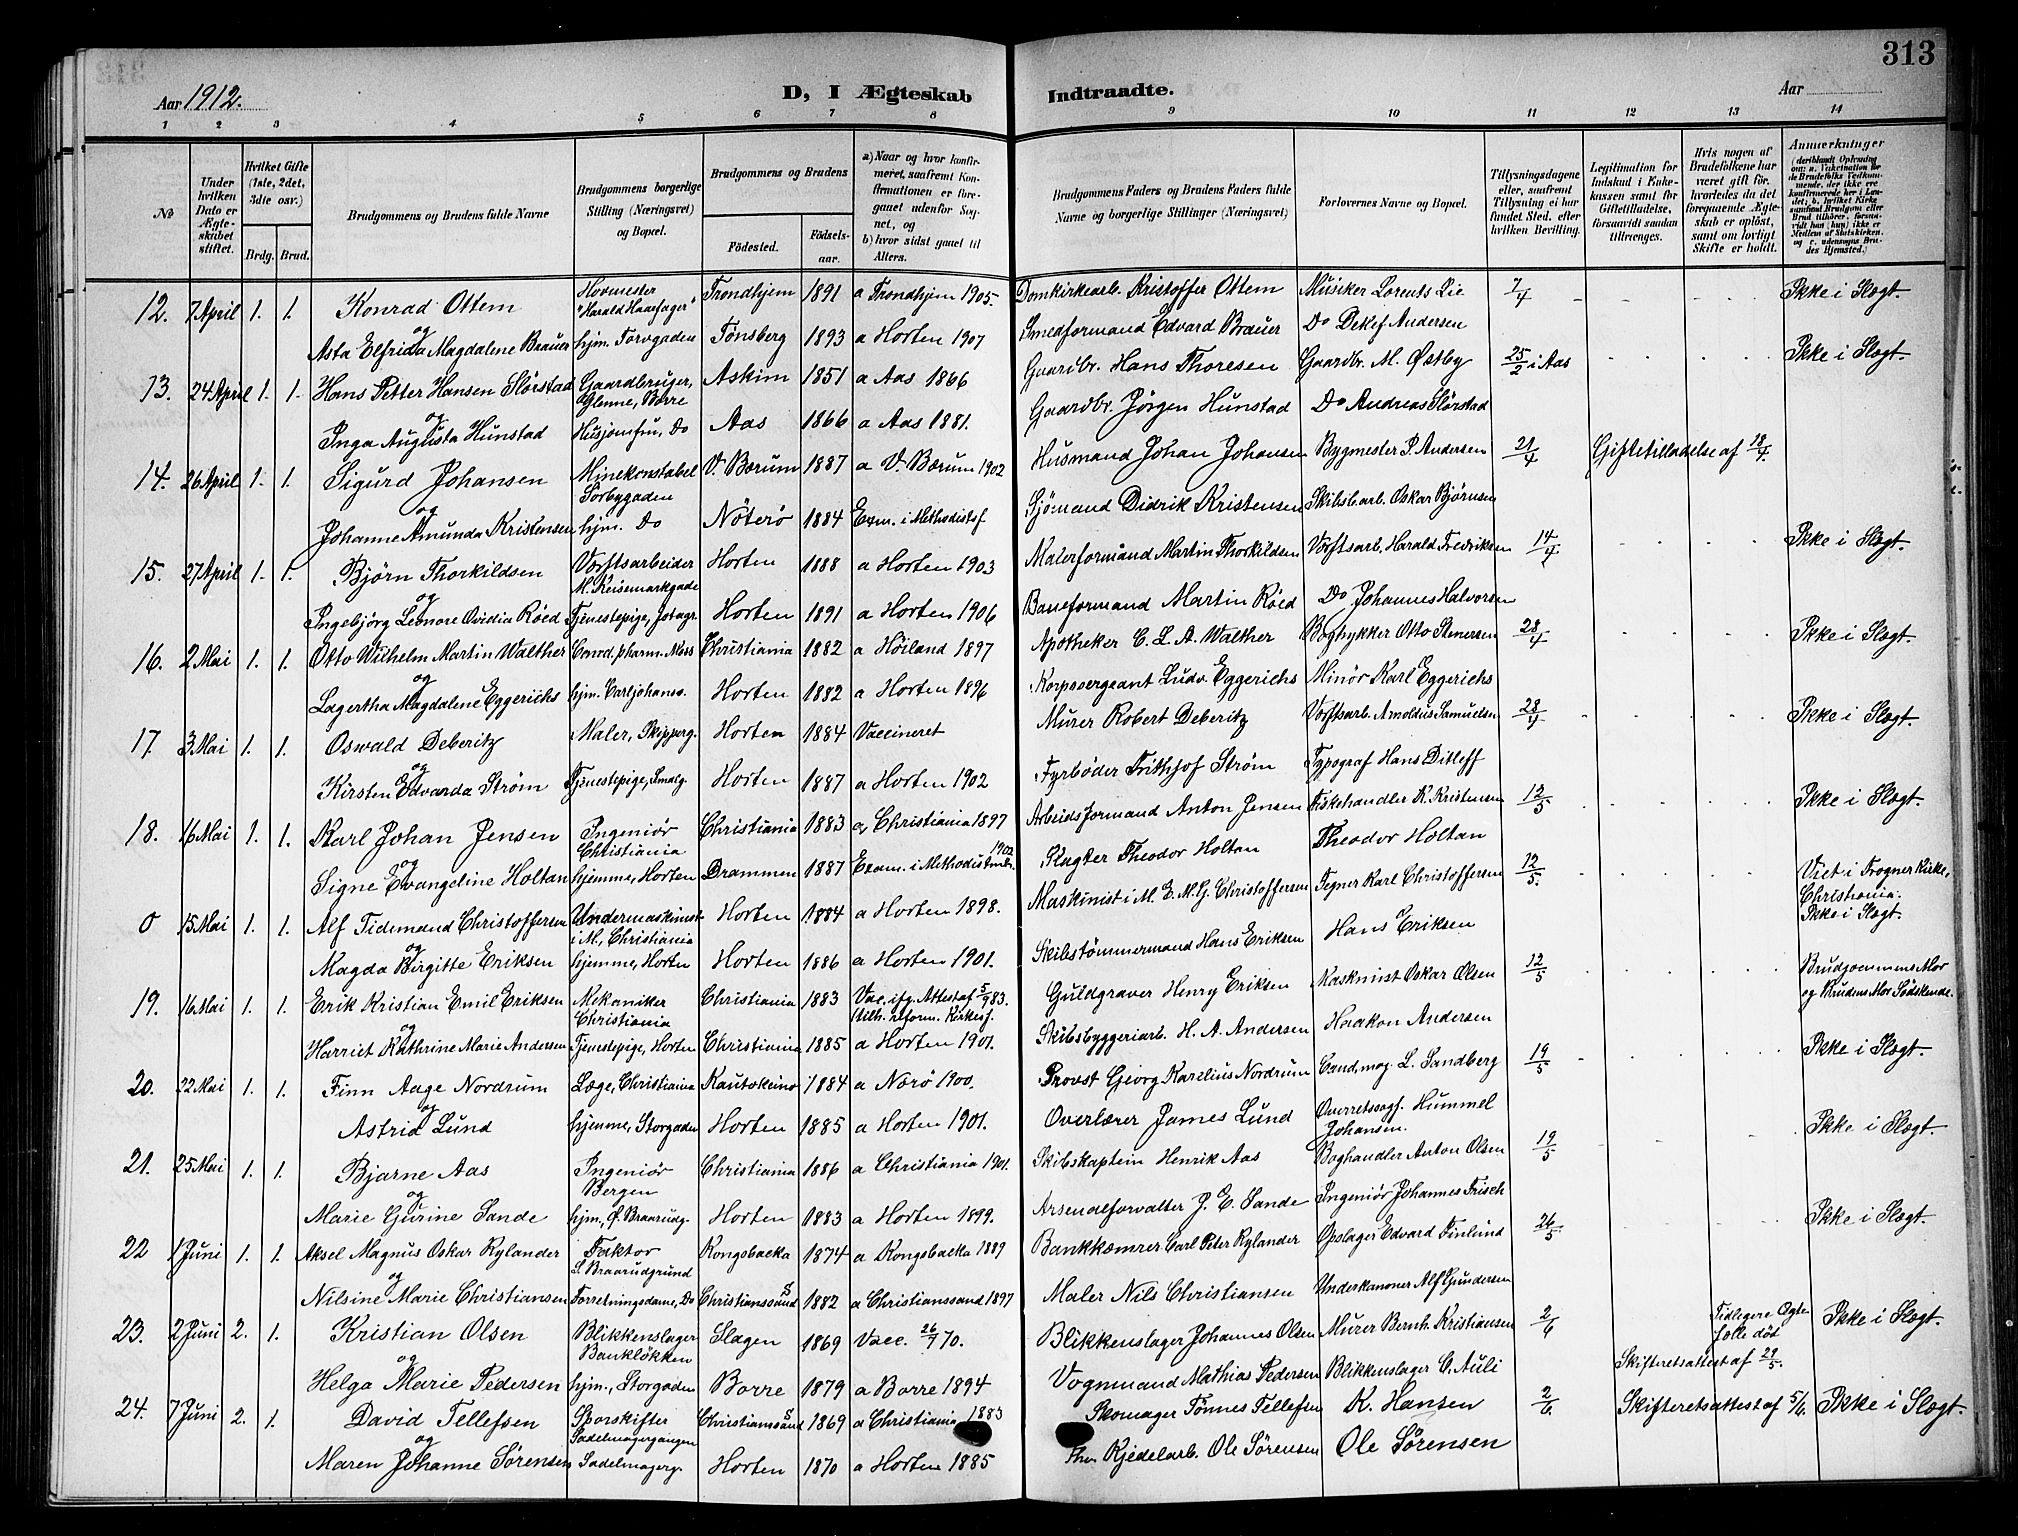 313
Aar 1912.
D, I Ægteskab Indtraadte.
Aar
1 2 3 4 5 6 7 8 9 10 11 12 13 14
№
Under hvilken Dato er Ægteskabet stiftet.
Hvilket Gifte (1ste, 2det, 3die osv.)
Brdg. Brud.
Brudgommens og Brudens fulde Navne
Brudgommens borgerlige Stilling (Næringsvei) og Bopæl.
Brudgommens og Brudens
Födested. Födselsaar.
a) Naar og hvor konfirmeret, saafremt Konfirmationen er foregaaet udenfor Sognet, og
b) hvor sidst gaaet til Alters.
Brudgommens Faders og Brudens Faders fulde Navne og borgerlige Stillinger (Næringsvei)
Forlovernes Navne og Bopæl.
Tillysningsdagene eller, saafremt Tillysning ei har fundet Sted, efter hvilken Bevilling.
Legitimation for Indskud i Enkekassen samt for Giftetilladelse, forsaavidt saadan tiltrænges.
Hvis nogen af Brudefolkene har været gift før, hvorledes da det foregaaende Ægteskab er opløst, samt om lovligt Skifte er holdt.
Anmerkninger
12. 7 April 1. 1. Konrad Ottem Hovmester "Harald Haarfager" Trondhjem 1891 a Trondhjem 1905. Domkirkearb. Kristoffer Ottem Musiker Lorents Lie 7/4 Ikke i Slægt.
og
Asta Elfrida Magdalene Brauer hjm. Torvgaden Tønsberg 1893 a Horten 1907 Smedformand Edvard Brauer Do Detlef Andersen
13. 24 April 1. 1. Hans Petter Hansen Slørstad Gaardbruger, Glenne, Borre Askim 1851 a Aas 1866 Gaardbr. Hans Thoresen Gaardbr. M. Østby 25/2 i Aas Ikke i Slægt.
og
Inga Augusta Hunstad Husjomfru, Do Aas 1866 a Aas 1881. Gaardbr. Jørgen Hunstad Do Andreas Slørstad
14. 26 April 1. 1. Sigurd Johansen Minekonstabel Sørbygaden V. Bærum 1887 a V. Bærum 1902 Husmand Johan Johansen Bygmester P. Andersen 21/4 Giftetilladelse af 18/4.
og
Johanne Amunda Kristensen hjm. Do Nøterø 1884 Exm. i Methodistsf Sjømand Didrik Kristensen Skibsbarb. Oskar Bjørnsen
15. 27 April 1. 1. Bjørn Thorkildsen Værftsarbeider M. Keisemarkgade Horten 1888 a Horten 1903 Malerformand Martin Thorkildsen Værftsarb. Harald Fredriksen 14/4 Ikke i Slægt.
og
Ingebjørg Leonore Ovidia Røed Tjenestepige, Jotagr. Horten 1891 a Horten 1906 Baneformand Martin Røed Do Johannes Halvorsen
16. 2 Mai 1. 1. Otto Wilhelm Martin Walther Cand. pharm. Moss Christiania 1882 a Høiland 1897 Apotheker C. L. A. Walther Boghykker Otto Stenersen 28/4 Ikke i Slægt.
og
Lagertha Magdalene Eggerichs hjm. Carljohansv. Horten 1882 a Horten 1896 Korpssergeant Ludv. Eggerichs Minør Karl Eggerichs
17. 3 Mai 1. 1. Oswald Deberitz Maler, Skipperg. Horten 1884 Vaccineret Murer Robert Deberitz Værftsarb. Arnoldus Samuelsen 28/4 Ikke i Slægt.
og
Kirsten Edvarda Strøm Tjenestepige, Smalg. Horten 1887 a Horten 1902 Fyrbøder Frithjof Strøm Typograf Hans Ditleff
18. 16 Mai 1. 1. Karl Johan Jensen Ingeniør Christiania Christiania 1883 a Christiania 1897 Arbeidsformand Anton Jensen Fiskehandler K. Kristensen 12/5 Ikke i Slægt.
og
Signe Evangeline Holtan hjemme, Horten Drammen 1887 Exam. i Methodistmh. 1902 Slagter Theodor Holtan Theodor Holtan
0 15 Mai 1. 1. Alf Tidemand Christoffersen Undermaskinist i M., Christiania Horten 1884 a Horten 1898. Maskinist i M. E. M. G. Christoffersen Tegner Karl Christoffersen 12/5. Viet i Frogner Kirke, Christiania. Ikke i Slægt.
og
Magda Birgitte Eriksen hjemme, Horten Horten 1886 a Horten 1901. Skibstømmermand Hans Eriksen Hans Eriksen
19. 16 Mai 1. 1. Erik Kristian Emil Eriksen Mekaniker Christiania Christiania 1883 Vac. ifg. Attest af 5/9 83. (tilh. reform. Kirkes). Guldgraver Henry Eriksen Maskinist Oskar Olsen 12/5 Brudgommens Mor og Brudens Mor Södskende.
og
Harriet Kathrine Marie Andersen Tjenestepige, Horten Christiania 1885 a Horten 1901. Skibsbyggeriarb. H. A. Andersen Haakon Andersen
20. 22 Mai 1. 1. Finn Aage Nordrum Læge, Christiania Kautokeino 1884 a Nærø 1900. Provst Georg Karelius Nordrum Cand. mag. L. Sandberg 19/5 Ikke i Slægt.
og
Astrid Lund hjemme, Storgaden Horten 1885 a Horten 1901. Overlærer James Lund Overretssagf. Hummel Johansen.
21. 25 Mai 1. 1. Bjarne Aas Ingeniør Bergen Christiania 1886 a Christiania 1901. Skibskaptein Henrik Aas Boghandler Anton Olsen 19/5 Ikke i Slægt.
og
Marie Gurine Sande hjm., Ø. Braarudg. Horten 1883 a Horten 1899. Arsenalforvalter J. E. Sande Ingeniør Johannes Frisch
22 1 Juni 1. 1. Aksel Magnus Oskar Rylander Faktor S. Braarudgrund Kongsbacka 1874 a Kongsbacka 1889 Bankkæmrer Carl Peter Rylander Opslager Edvard Finlund 26/5 Ikke i Slægt.
og
Nilsine Marie Christiansen Forretningsdame, Do Christianssand 1882 a Christianssand 1897 Maler Nils Christiansen Underkanoner Alf Gundersen
23. 2 Juni 2. 1. Kristian Olsen Blikkenslager Bankløkken Slagen 1869 Vacc. 26/7 70. Blikkenslager Johannes Olsen Murer Bernh. Kristiansen 2/6 Tidligere Ægtefælle død Ikke i Slægt.
og
Skifteretsattest af 29/5.
Helga Marie Pedersen hjm., Storgaden Borre 1879 a Borre 1894 Vognmand Mathias Pedersen Blikkenslager C. Auli
24. 7 Juni 2. 1. David Tellefsen Sporskifter Sadelmagergangen Christianssand 1869 a Christiania 1883 Skomager Tønnes Tellefsen K. Hansen 2/6 Skifteretsattest af 5/6. Ikke i Slægt.
og
Maren Johanne Sørensen Sadelmagerg. Horten 1870 a Horten 1885 Kjedelarb. Ole Sørensen Ole Sørensen